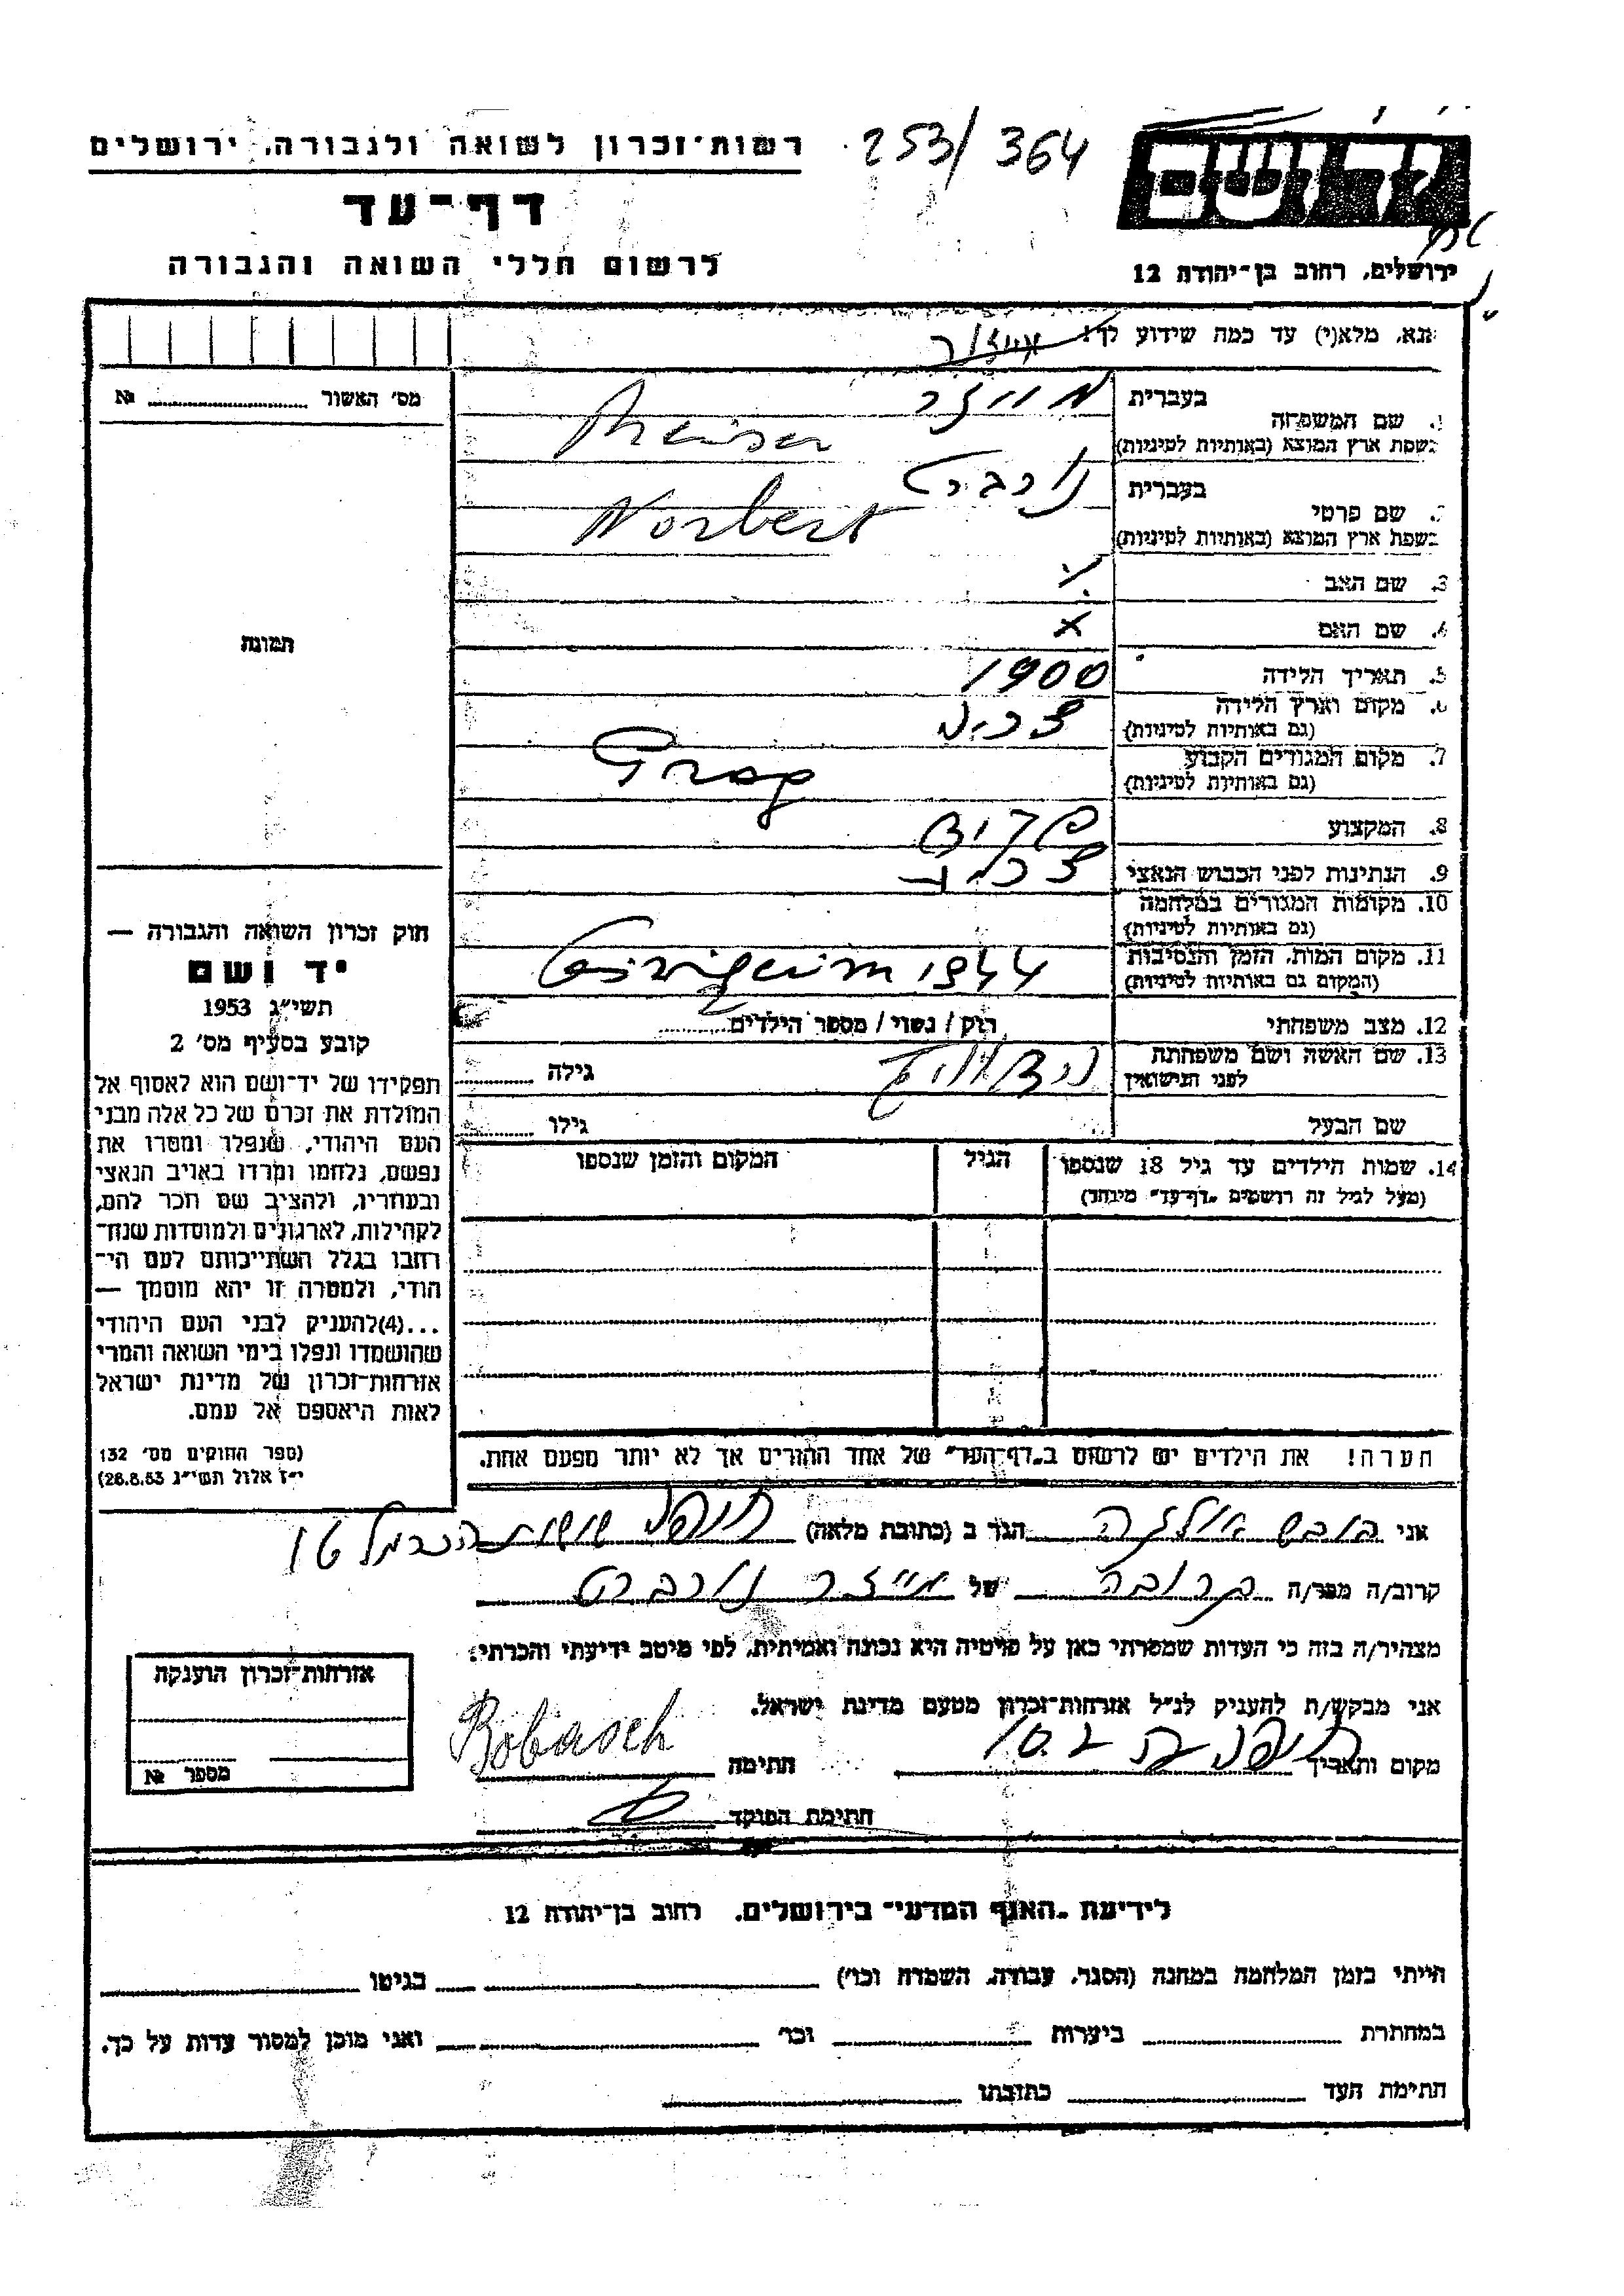 רשות־זכרון לשואה ולגבורה, ירושלים
253/364
יד ושם
דף־עד
לרשום חללי השואה והגבורה
ירושלים, רחוב בן־יהודה 12
נא, מלא(י) עד כמה שידוע לך!
מס׳ האשור № 
1. שם המשפחה
בעברית
בשפת ארץ המוצא (באותיות לטיניות)
2. שם פרטי
בעברית
נורברט
בשפת ארץ המוצא (באותיות לטיניות)
Norbert
3. שם האב
4. שם האם
x
5. תאריך הלידה
1900
6. מקום וארץ הלידה
(גם באותיות לטיניות)
7. מקום המגורים הקבוע
(גם באותיות לטיניות)
Prag
8. המקצוע
פקיד
9. הנתינות לפני הכבוש הנאצי
10. מקומות המגורים במלחמה
(גם באותיות לטיניות)
11. מקום המות, הזמן והנסיבות
(המקום גם באותיות לטיניות)
1944
12. מצב משפחתי
רוק / נשוי / מספר הילדים
13. שם האשה ושם משפחתה
לפני הנישואין
גילה
שם הבעל
גילו
תמונה
חוק זכרון השואה והגבורה —
יד ושם
תשי״ג 1953
קובע בסעיף מס׳ 2
תפקידו של יד־ושם הוא לאסוף אל
המולדת את זכרם של כל אלה מבני
העם היהודי, שנפלו ומסרו את
נפשם, נלחמו ומרדו באויב הנאצי
ובעוזריו, ולהציב שם וזכר להם,
לקהילות, לארגונים ולמוסדות שנח־
רבו בגלל השתייכותם לעם הי־
הודי, ולמטרה זו יהא מוסמך —
...(4)להעניק לבני העם היהודי
שהושמדו ונפלו בימי השואה והמרי
אזרחות־זכרון של מדינת ישראל
לאות היאספם אל עמם.
(ספר החוקים מס׳ 132
י״ז אלול תשי״ג 28.8.53)
14. שמות הילדים עד גיל 18 שנספו
(מעל לגיל זה רושמים „דף־עד״ מיוחד)
הגיל
המקום והזמן שנספו
הערה! את הילדים יש לרשום ב„דף־העד״ של אחד ההורים אך לא יותר מפעם אחת.
אני הגר ב (כתובת מלאה) חיפה
קרוב/ה מכר/ה קרובה של נורברט
מצהיר/ה בזה כי העדות שמסרתי כאן על פרטיה היא נכונה ואמיתית, לפי מיטב ידיעתי והכרתי:
אני מבקש/ת להעניק לנ״ל אזרחות־זכרון מטעם מדינת ישראל.
מקום ותאריך חיפה חתימה Bobasch
חתימת הפוקד
אזרחות־זכרון הוענקה
מספר №
לידיעת „האגף המדעי״ בירושלים, רחוב בן־יהודה 12
הייתי בזמן המלחמה במחנה (הסגר, עבודה, השמדה וכו׳) בגיטו
במחתרת ביערות וכו׳ ואני מוכן למסור עדות על כך.
חתימת העד כתובתו